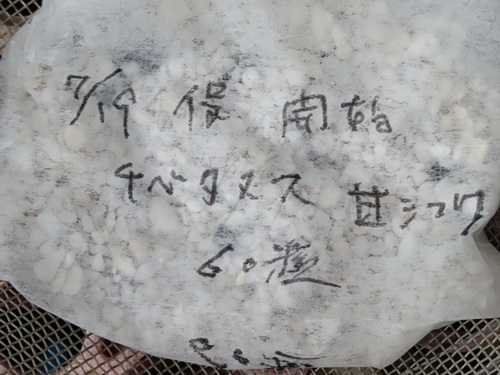 7/19 開始
チベタヌス 甘シュク
60粒